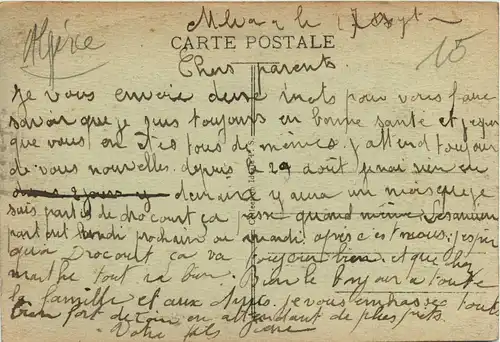 Algérie
le 17 Sept
15
CARTE POSTALE
Chers parents
Je vous envoie deux mots pour vous faire
savoir que je suis toujours en bonne santé et j'espère
que vous en êtes tous de mêmes. j'attend toujour
de vous nouvelles. depuis le 29 août
demain y aura un mois que je
suis partis de drocourt ça passe quand même
partent lundi prochain ou mardi. après c'est nous. j'espère
qu'a Drocourt ça va toujour bien. et que
marthe tout va bien. le bonjour a toute
la famille et aux amis. je vous embrasse tous
bien fort de loin en attendant de plus près.
Votre fils